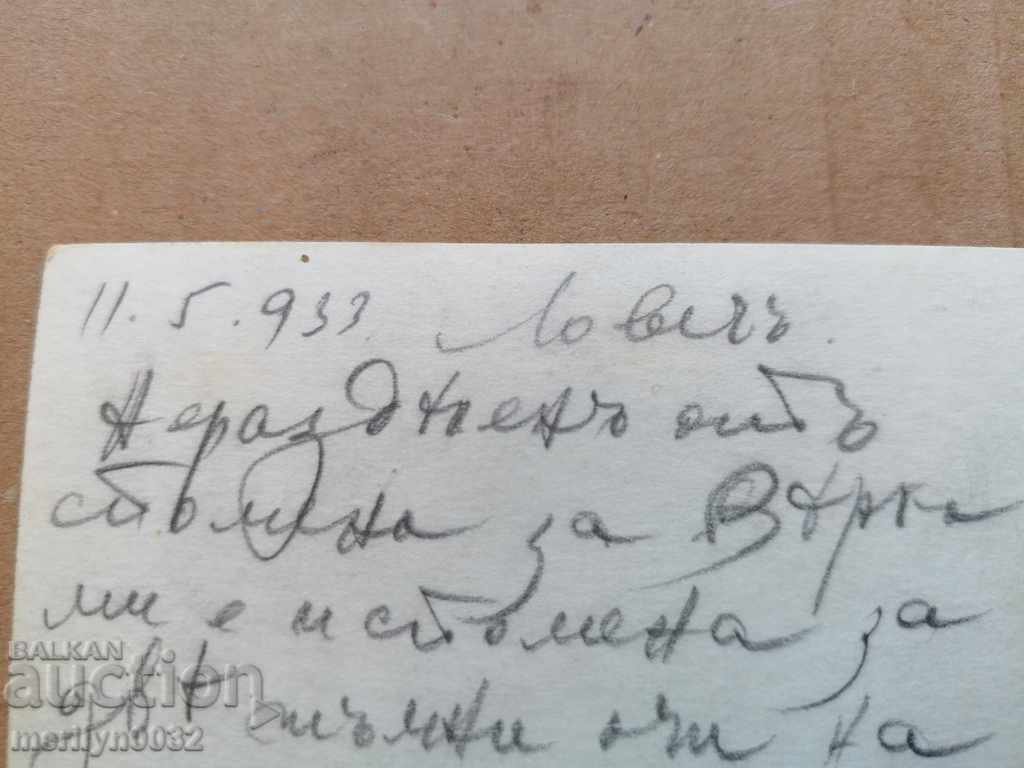 11. 5. 933. Ловечъ.
Нераздѣленъ отъ
спомена за Вѣрка
ми е и спомена за
двѣ тъмни очи на
BALKAN
auction
merilyn0032